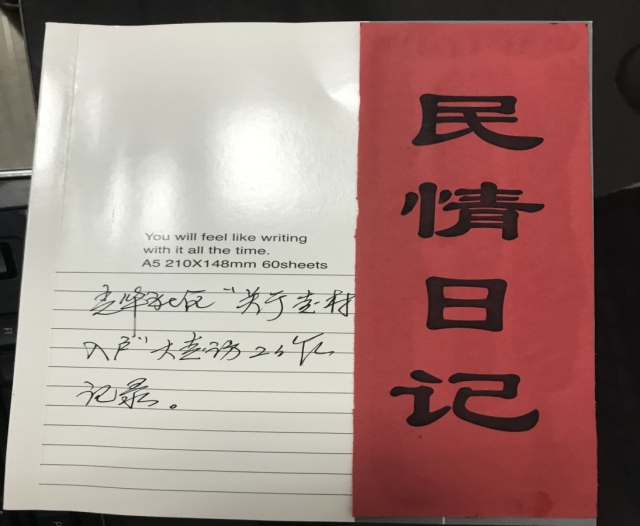 You will feel like writing
with it all the time.
A5 210X148mm 60sheets
"关于走村
入户"大走访
记录。
民情日记